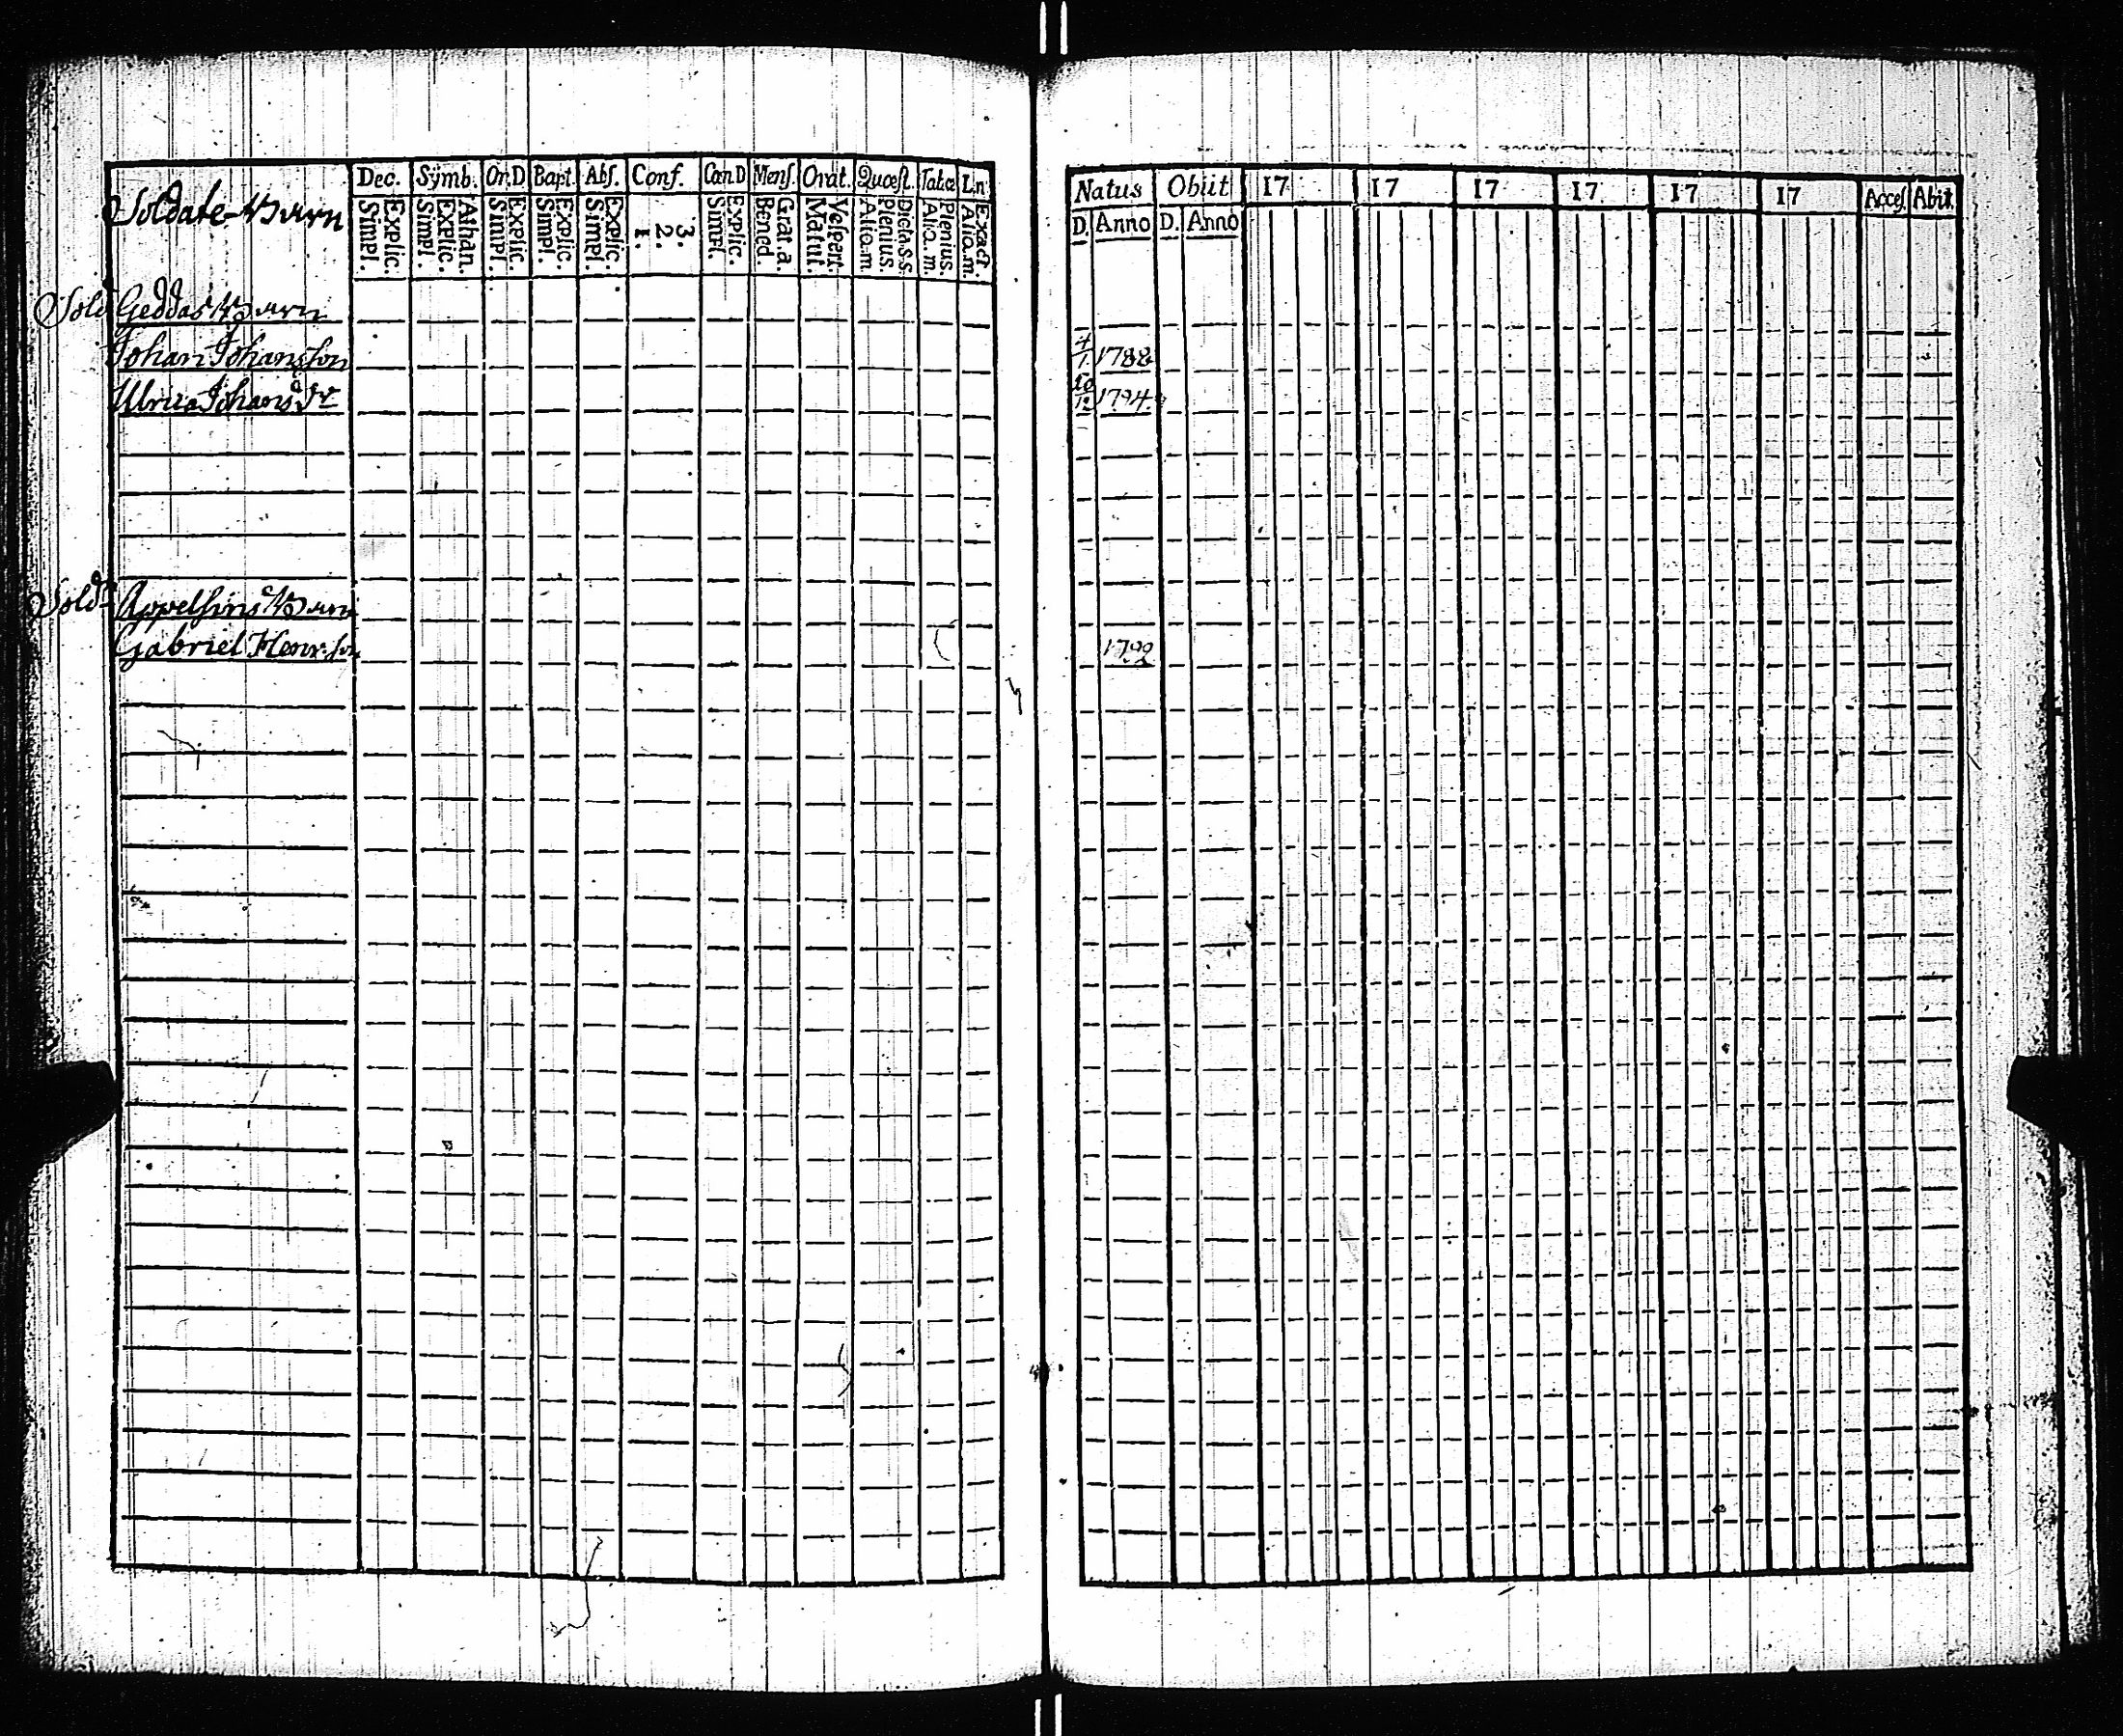 Soldate-Barn
Dec. Symb. Or.D Bapt. Abſ. Conf. Cœn.D Menſ. Orat. Quœſt. Tab.œ L.n
Explic. Simpl. Athan. Explic. Simpl. Explic. Simpl. Explic. Simpl. Explic. Simpl. 3. 2. 1. Explic. Simpl. Grat.a. Bened. Veſpert. Matut. Dicta.s.s. Plenius. Alio.m. Plenius. Alia.m. Exact. Alio.m.
Natus Obiit 17 17 17 17 17 17 Acceſ. Abit.
D. Anno D. Anno
Sold Geddas Barn
Johan Johansſon 4/1 1788
Ulrica Johans dr 10/12 1794.
Sold Appelſins Barn
Gabriel Henr.ſon 1792